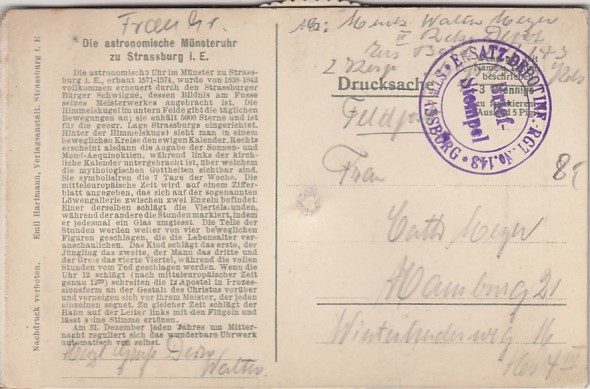 Frau Gr.
Die astronomische Münsteruhr
zu Strassburg i. E.
Die astronomische Uhr im Münster zu Strass-
burg i. E., erbaut 1571-1574, wurde von 1838-1842
vollkommen erneuert durch den Strassburger
Bürger Schwilgué, dessen Bildnis am Fusse
seines Meisterwerkes angebracht ist. Die
Himmelskugel im untern Felde gibt die täglichen
Bewegungen an; sie enthält 5000 Sterne und ist
für die geogr. Lage Strassburgs eingerichtet.
Hinter der Himmelskugel sieht man in einem
beweglichen Kreise den ewigen Kalender. Rechts
erscheint alsdann die Angabe der Sonnen- und
Mond-Aequinoktien, während links der kirch-
liche Kalender untergebracht ist, über welchem
die mythologischen Gottheiten sichtbar sind.
Sie symbolisiren die 7 Tage der Woche. Die
mitteleuropäische Zeit wird auf einem Ziffer-
blatt angegeben, das sich auf der sogenannten
Löwengallerie zwischen zwei Enzeln befindet.
Einer derselben schlägt die Viertelstunden,
während der andere die Stunden markiert, indem
er jedesmal ein Glas umgiesst. Die Teile der
Stunden werden weiter von vier beweglichen
Figuren geschlagen, die die Lebensalter ver-
anschaulichen. Das Kind schlägt das erste, der
Jüngling das zweite, der Mann das dritte und
der Greis das vierte Viertel, während die vollen
Stunden vom Tod geschlagen werden. Wenn die
Uhr 12 schlägt (nach mitteleuropäischer Zeit
genau 12) schreiten die 12 Apostel in Prozes-
sionsform an der Gestalt des Christus vorüber
und verneigen sich vor ihrem Meister, der jeden
einzelnen segnet. Zu gleicher Zeit schlägt der
Hahn auf der Leiter links mit den Flügeln und
lässt seine Stimme ertönen.
Am 31. Dezember jeden Jahres um Mitter-
nacht reguliert sich das wunderbare Uhrwerk
automatisch von selbst.
Herzl Gruß Dein
Walter
Nachdruck verboten. Emil Hartmann, Verlagsanstalt, Strassburg i. E
Abs: Walter Meyer
Drucksache
3 Pfennige
zu frankieren
Ausland 5 Pfg.
ERSATZ-DEPOT INF.-RGT. No. 143
STRASSBURG ELS.
Brief-
stempel
Frau
Meyer
Hamburg 21